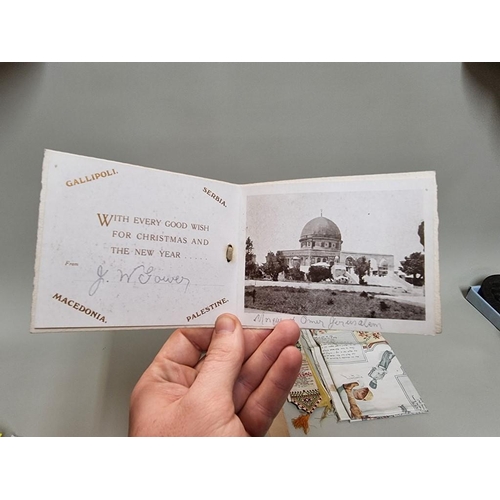 GALLIPOLI.
SERBIA.
WITH EVERY GOOD WISH
FOR CHRISTMAS AND
THE NEW YEAR
From
J. W Gower
MACEDONIA.
PALESTINE.
Mosque of Omer Jerusalem